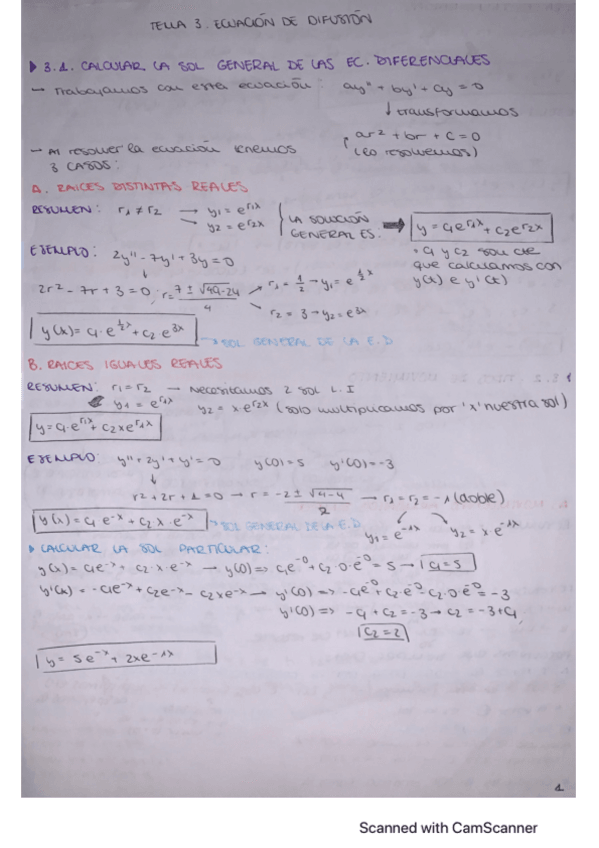 TEMA 3. ECUACIÓN DE DIFUSIÓN
3.1. CALCULAR LA SOL GENERAL DE LAS EC. DIFERENCIALES
→ Trabajamos con esta ecuación: ay'' + by' + cy = 0
↓ transformamos
ar² + br + c = 0
(lo resolvemos)
→ Al resolver la ecuación tenemos
3 CASOS:
A. RAICES DISTINTAS REALES
RESUMEN: r₁ ≠ r₂ → y₁ = e^{r₁x}
→ y₂ = e^{r₂x}
LA SOLUCIÓN GENERAL ES: → y = c₁e^{r₁x} + c₂e^{r₂x}
• c₁ y c₂ son cte que calculamos con y(t) e y'(t)
EJEMPLO: 2y'' - 7y' + 3y = 0
↓
2r² - 7r + 3 = 0; r = (7 ± √(49-24))/4 → r₁ = 1/2 → y₁ = e^{1/2 x}
→ r₂ = 3 → y₂ = e^{3x}
y(x) = c₁·e^{1/2 x} + c₂·e^{3x} → SOL GENERAL DE LA E.D
B. RAICES IGUALES REALES
RESUMEN: r₁ = r₂ → Necesitamos 2 SOL L.I
y₁ = e^{r₁x} y₂ = x·e^{r₂x} (solo multiplicamos por 'x' nuestra sol)
y = c₁·e^{r₁x} + c₂xe^{r₁x}
EJEMPLO: y'' + 2y' + y' = 0 y(0) = 5 y'(0) = -3
↓
r² + 2r + 1 = 0 → r = (-2 ± √(4-4))/2 → r₁ = r₂ = -1 (doble)
y₁ = e^{-1x} y₂ = x e^{-1x}
y(x) = c₁ e^{-x} + c₂ x·e^{-x} → SOL GENERAL DE LA E.D
CALCULAR LA SOL PARTICULAR:
y(x) = c₁e^{-x} + c₂·x·e^{-x} → y(0) => c₁e^{-0} + c₂·0·e^{-0} = 5 → c₁ = 5
y'(x) = -c₁e^{-x} + c₂e^{-x} - c₂xe^{-x} → y'(0) => -c₁e^{-0} + c₂·e^{-0} - c₂·0·e^{-0} = -3
y'(0) => -c₁ + c₂ = -3 → c₂ = -3 + c₁
c₂ = 2
y = 5e^{-x} + 2xe^{-1x}
1
Scanned with CamScanner